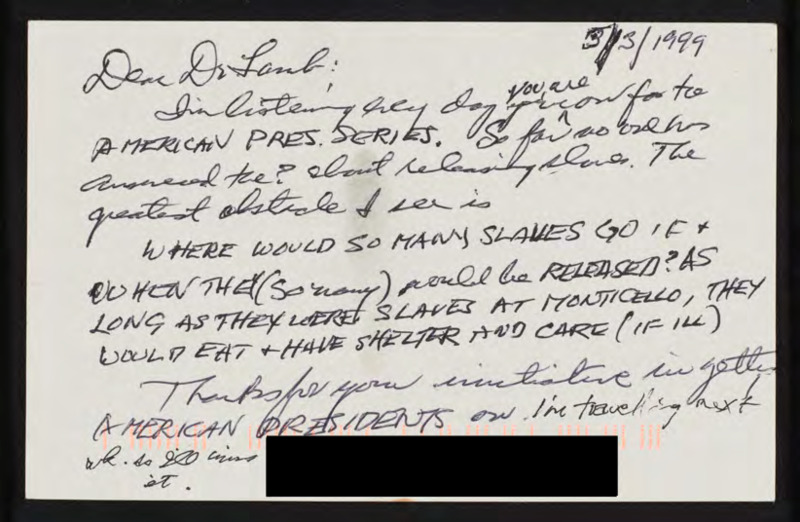 3/3/1999
Dear Dr Lamb:
I'm listening every day you are on for the
AMERICAN PRES. SERIES. So far no one has
answered the? about releasing slaves. The
greatest obstacle I see is
WHERE WOULD SO MANY SLAVES GO IF +
WHEN THEY (So many) would be RELEASED? AS
LONG AS THEY WERE SLAVES AT MONTICELLO, THEY
WOULD EAT + HAVE SHELTER AND CARE (IF ILL)
Thanks for your initiative in getting
AMERICAN PRESIDENTS on. I'm travelling next
wk. so I'll miss
it.